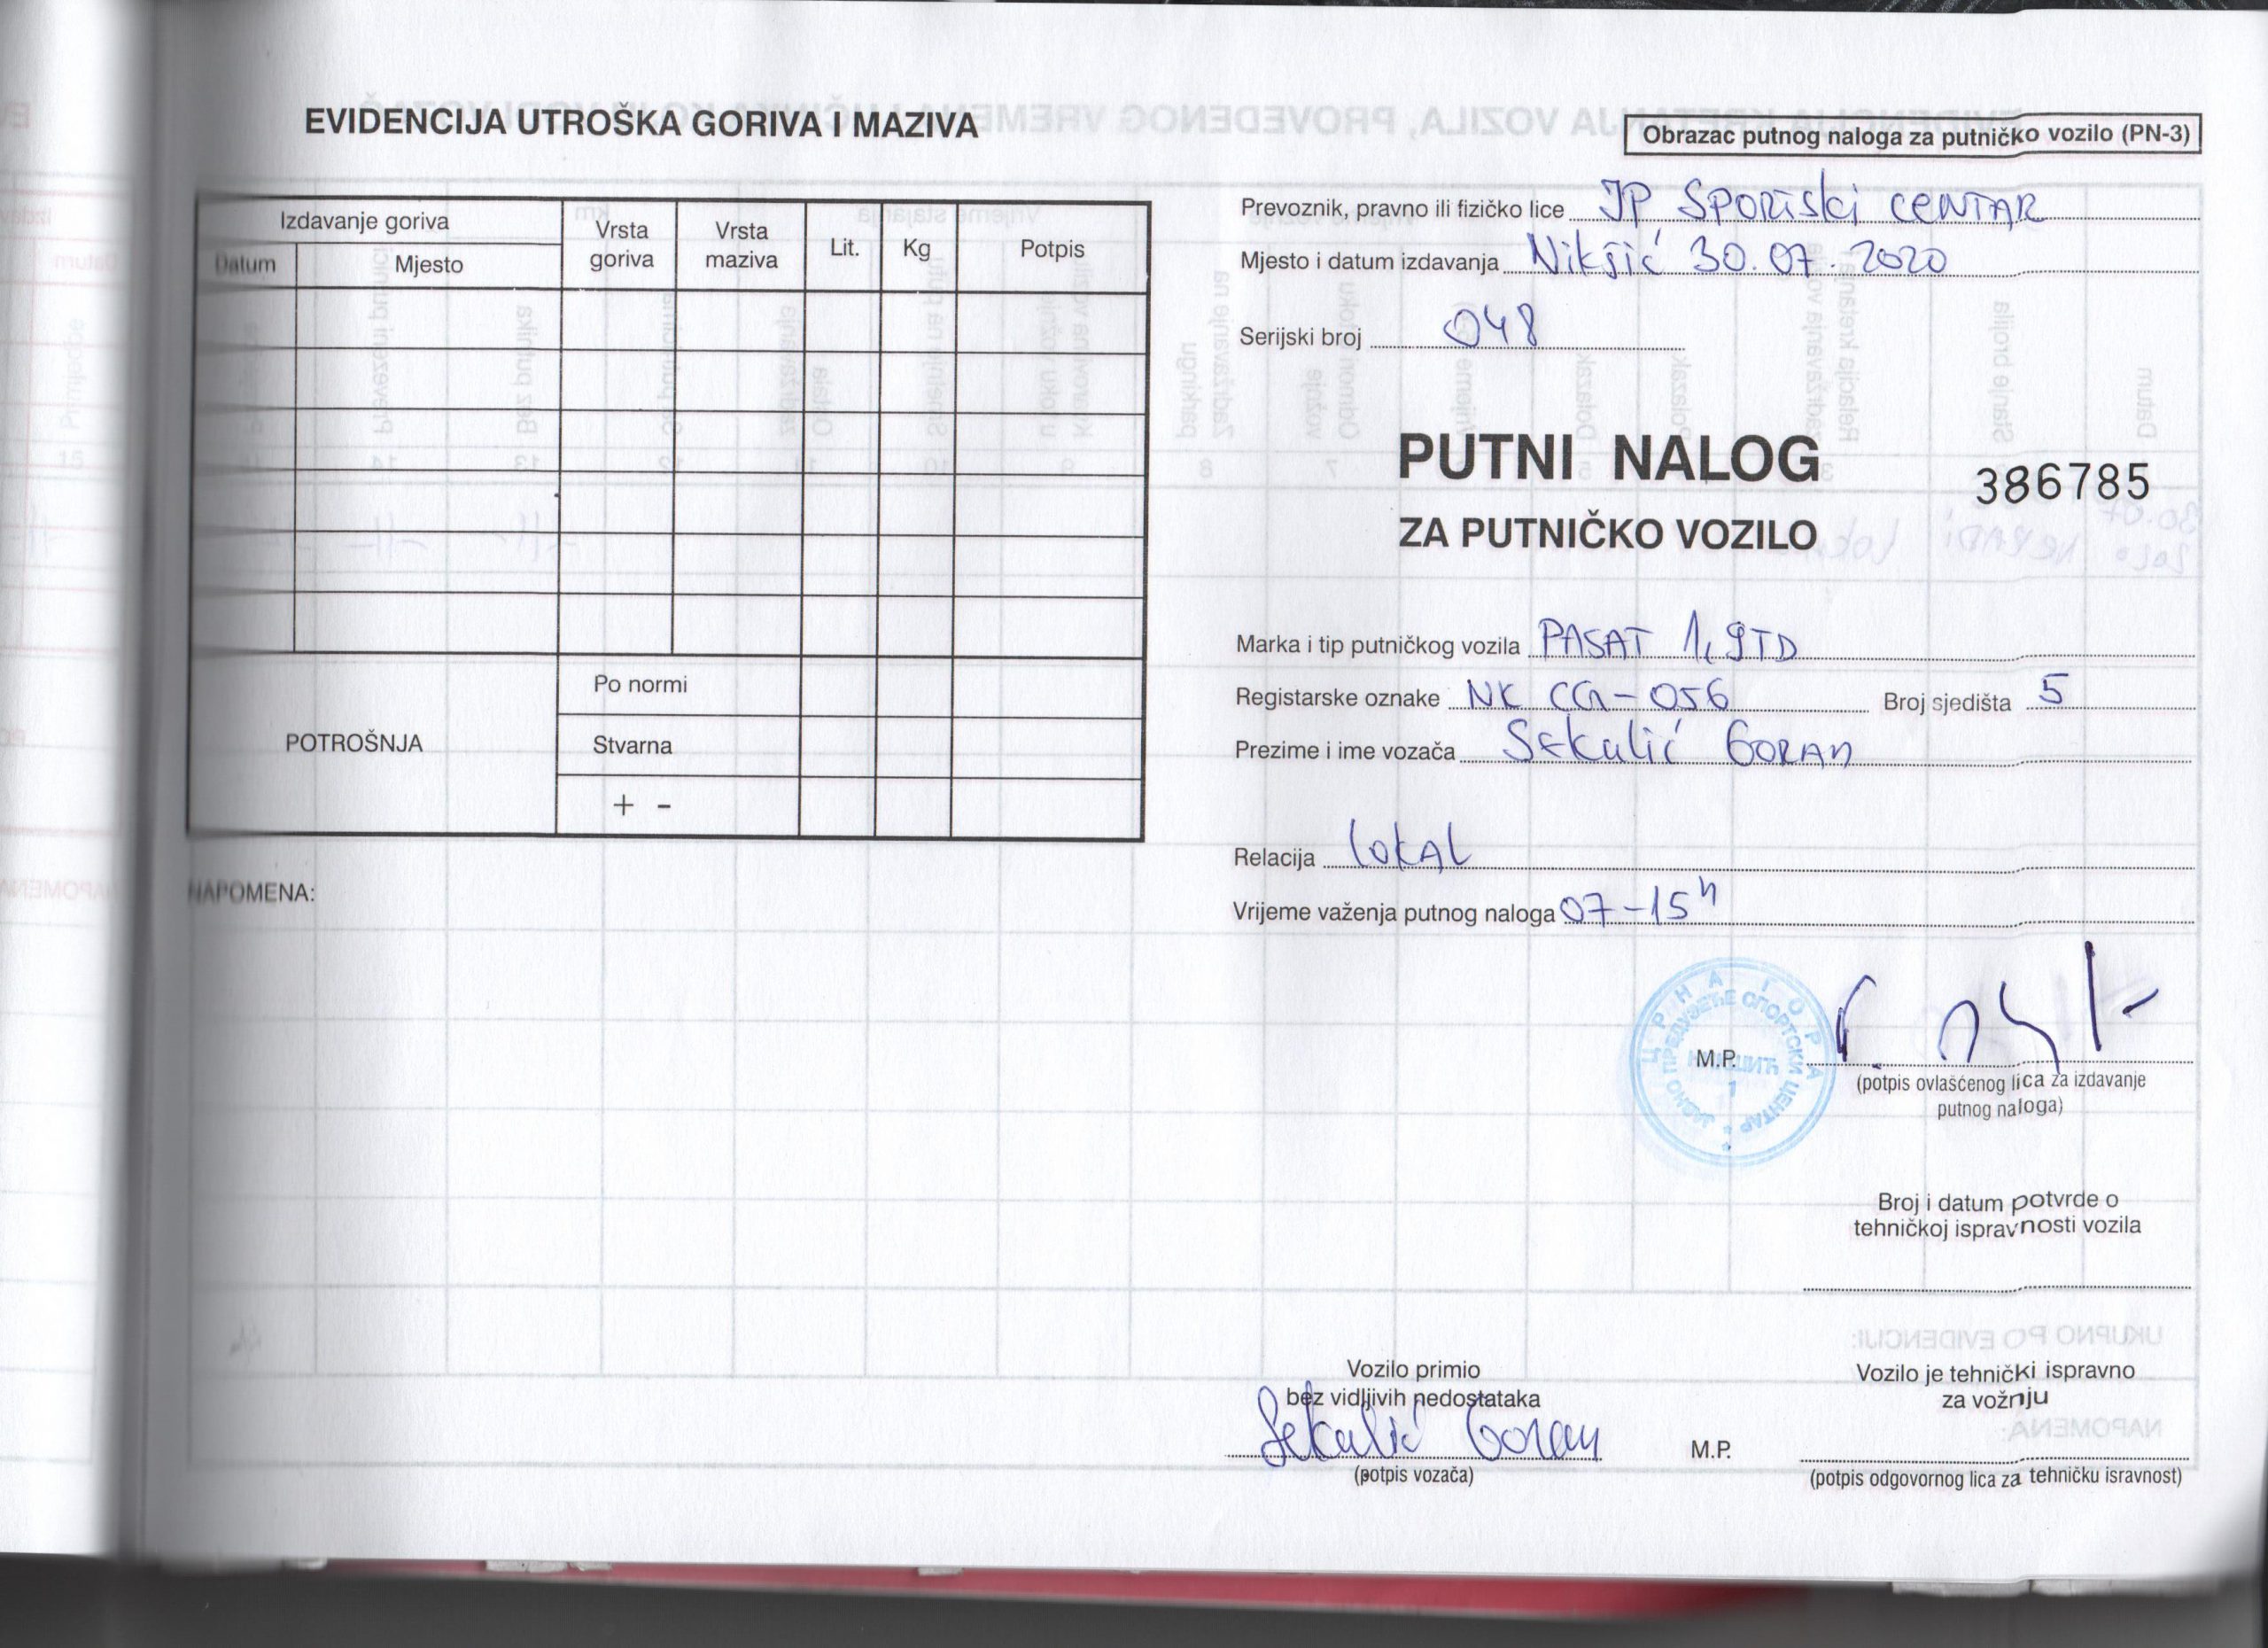 EVIDENCIJA UTROŠKA GORIVA I MAZIVA
Izdavanje goriva
Datum
Mjesto
Vrsta goriva
Vrsta maziva
Lit.
Kg
Potpis
POTROŠNJA
Po normi
Stvarna
+ -
NAPOMENA:
Obrazac putnog naloga za putničko vozilo (PN-3)
Prevoznik, pravno ili fizičko lice JP SPORTSki CENTAR
Mjesto i datum izdavanja Nikšić 30.07.2020
Serijski broj 048
PUTNI NALOG
386785
ZA PUTNIČKO VOZILO
Marka i tip putničkog vozila PASAT 1,9TD
Registarske oznake NK CG-056 Broj sjedišta 5
Prezime i ime vozača Sekulić GORAN
Relacija lokAL
Vrijeme važenja putnog naloga 07-15h
ЦРНА ГОРА
ЈАВНО ПРЕДУЗЕЋЕ СПОРТСКИ ЦЕНТАР
НИКШИЋ
1
M.P.
(potpis ovlašćenog lica za izdavanje
putnog naloga)
Broj i datum potvrde o
tehničkoj ispravnosti vozila
Vozilo primio
bez vidljivih nedostataka
Sekulić Goran
(potpis vozača)
M.P.
Vozilo je tehnički ispravno
za vožnju
(potpis odgovornog lica za tehničku isravnost)